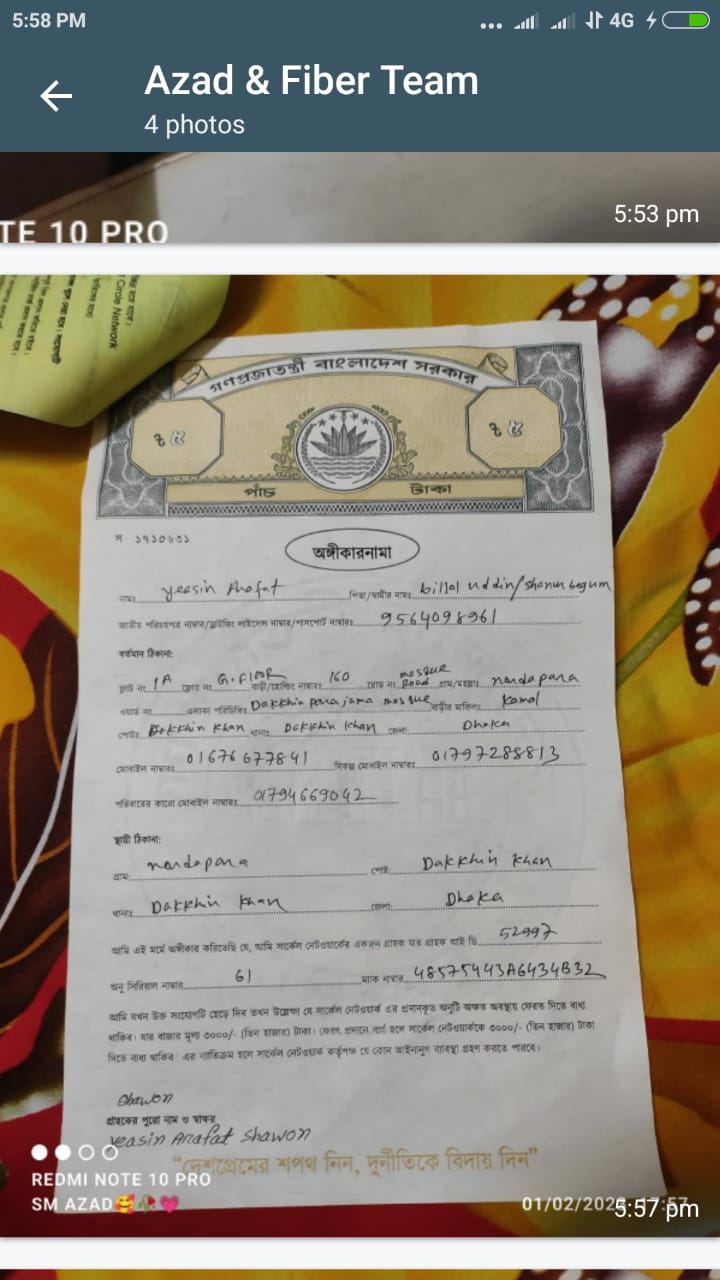 5:58 PM
4G
Azad & Fiber Team
4 photos
TE 10 PRO
5:53 pm
Circle Network
গণপ্রজাতন্ত্রী বাংলাদেশ সরকার
৳ ৫
৳ ৫
পাঁচ
টাকা
স ১৭১০৬৩১
অঙ্গীকারনামা
নামঃ yeasin Arafat পিতা/স্বামীর নামঃ billal uddin/shanur begum
জাতীয় পরিচয়পত্র নাম্বার/ড্রাইভিং লাইসেন্স নাম্বার/পাসপোর্ট নাম্বারঃ 9564098961
বর্তমান ঠিকানা:
ফ্লাট নং 1A ফ্লোর নং G.Floor বাড়ী/হোল্ডিং নাম্বারঃ 160 রোড নং mosque Road গ্রাম/মহল্লাঃ nardapara
ওয়ার্ড নং এলাকা পরিচিতিঃ Dakkhin para jama mosque বাড়ীর মালিকঃ Kamal
পোষ্টঃ Dakkhin Khan থানাঃ Dakkhin Khan জেলাঃ Dhaka
মোবাইল নাম্বারঃ 01676677841 বিকল্প মোবাইল নাম্বারঃ 01797288813
পরিবারের কারো মোবাইল নাম্বারঃ 01794669042
স্থায়ী ঠিকানা:
গ্রাম: nardapara পোষ্ট: Dakkhin Khan
থানাঃ Dakkhin Khan জেলা: Dhaka
আমি এই মর্মে অঙ্গীকার করিতেছি যে, আমি সার্কেল নেটওয়ার্কের একজন গ্রাহক যার গ্রাহক আই ডি 52997
অনু সিরিয়াল নাম্বার 61 ম্যাক নাম্বার 48575443A6434B32
আমি যখন উক্ত সংযোগটি ছেড়ে দিব তখন উল্লেক্ষ্য যে সার্কেল নেটওয়ার্ক এর প্রদানকৃত অনুটি অক্ষত অবস্থায় ফেরত দিতে বাধ্য
থাকিব। যার বাজার মূল্য ৩০০০/- (তিন হাজার) টাকা। ফেরৎ প্রদানে ব্যর্থ হলে সার্কেল নেটওয়ার্ককে ৩০০০/- (তিন হাজার) টাকা
দিতে বাধ্য থাকিব। এর ব্যতিক্রম হলে সার্কেল নেটওয়ার্ক কর্তৃপক্ষ যে কোন আইনানুগ ব্যাবস্থা গ্রহণ করতে পারবে।
Shawon
গ্রাহকের পুরো নাম ও স্বাক্ষর
yeasin Arafat shawon
“দেশপ্রেমের শপথ নিন, দুর্নীতিকে বিদায় দিন”
REDMI NOTE 10 PRO
SM AZAD🥰🥀💓
01/02/202 17:57
5:57 pm